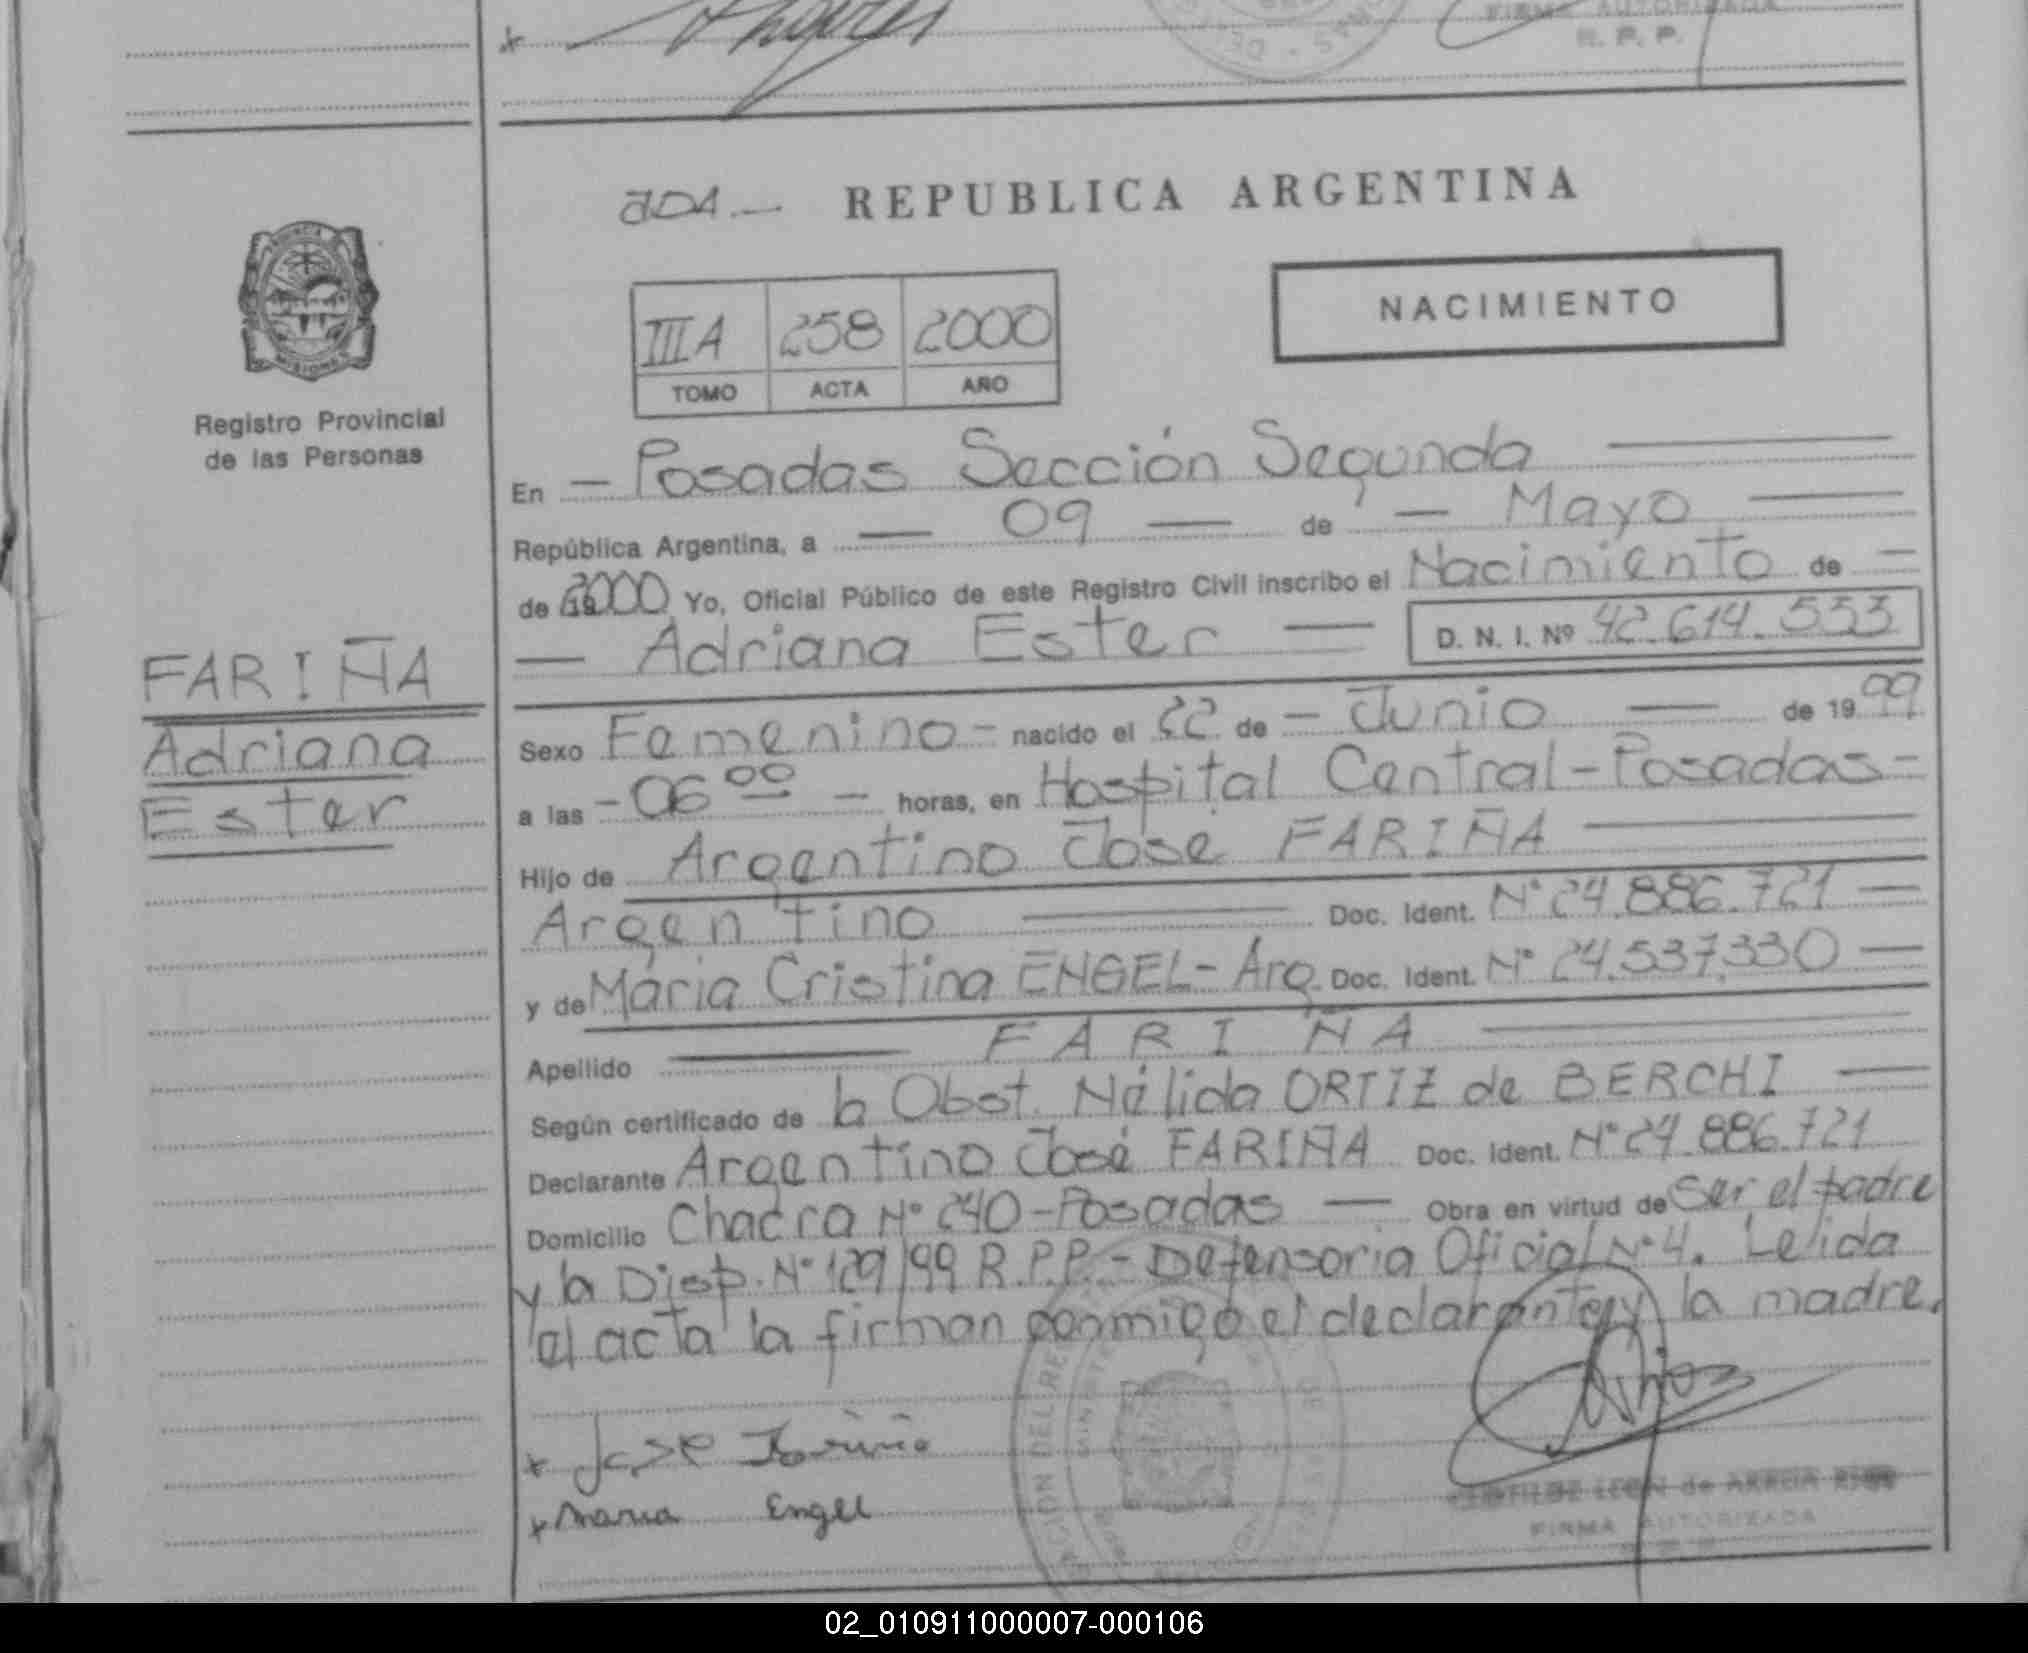 FIRMA AUTORIZADA
R. P. P.
REPUBLICA ARGENTINA
NACIMIENTO
IIIA 258 2000
TOMO ACTA AÑO
Registro Provincial
de las Personas
En — Posadas Sección Segunda —
República Argentina, a — 09 — de — Mayo —
de 2000 Yo, Oficial Público de este Registro Civil inscribo el Nacimiento de —
— Adriana Ester — D. N. I. Nº 42.614.553
FARIÑA
Adriana
Ester
Sexo Femenino - nacido el 22 de - Junio — de 1999
a las - 06 00 - horas, en Hospital Central - Posadas -
Hijo de Argentino José FARIÑA —
Argentino — Doc. Ident. Nº 24.886.721 —
y de María Cristina ENGEL - Arg. Doc. Ident. Nº 24.537.330 —
Apellido — FARIÑA —
Según certificado de la Obst. Nélida ORTIZ de BERCHI —
Declarante Argentino José FARIÑA Doc. Ident. Nº 24.886.721
Domicilio Chacra Nº 240 - Posadas — Obra en virtud de Ser el padre
y la Disp. Nº 129/99 R.P.P. - Defensoria Oficial Nº 4. Leída
el acta la firman conmigo el declarante y la madre.
x José Fariña
x Maria Engel
FIRMA AUTORIZADA
02_010911000007-000106